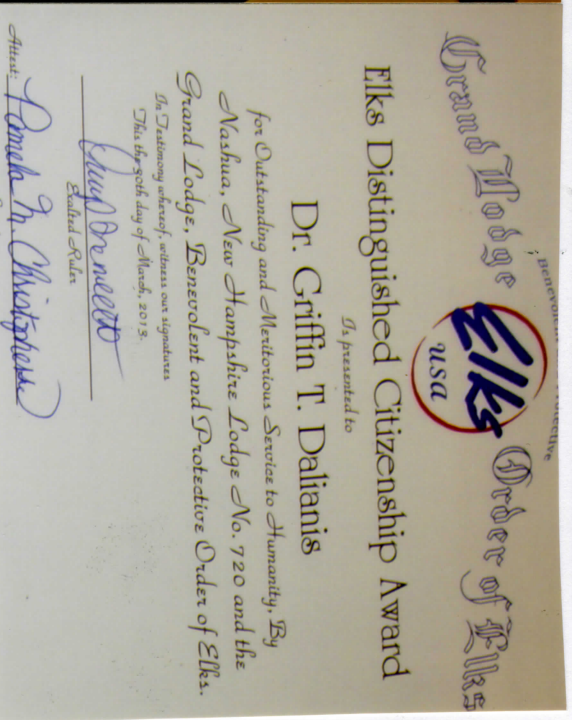 Benevolent and Protective
Grand Lodge Order of Elks
Elks
USA
Elks Distinguished Citizenship Award
Is presented to
Dr. Griffin T. Dalianis
for Outstanding and Meritorious Service to Humanity, By
Nashua, New Hampshire Lodge No. 720 and the
Grand Lodge, Benevolent and Protective Order of Elks.
In Testimony whereof, witness our signatures
This the 30th day of March, 2013.
Exalted Ruler
Attest: Pamela M. Christophersen